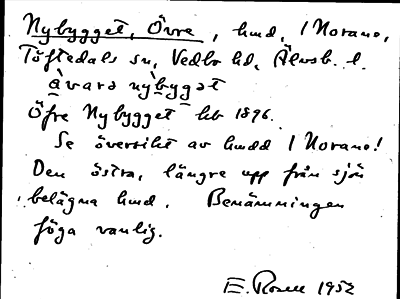 Nybygget, Övre, hmd, 1 Norane,
Töftedals sn, Vedbo hd, Älvsb. l.
àvara nỳbyget
Öfre Nybygget hb 1896.
Se översikt av hmdd 1 Norane!
Den östra, längre upp från sjön
belägna hmd. Benämningen
föga vanlig.
E. Rosell 1952